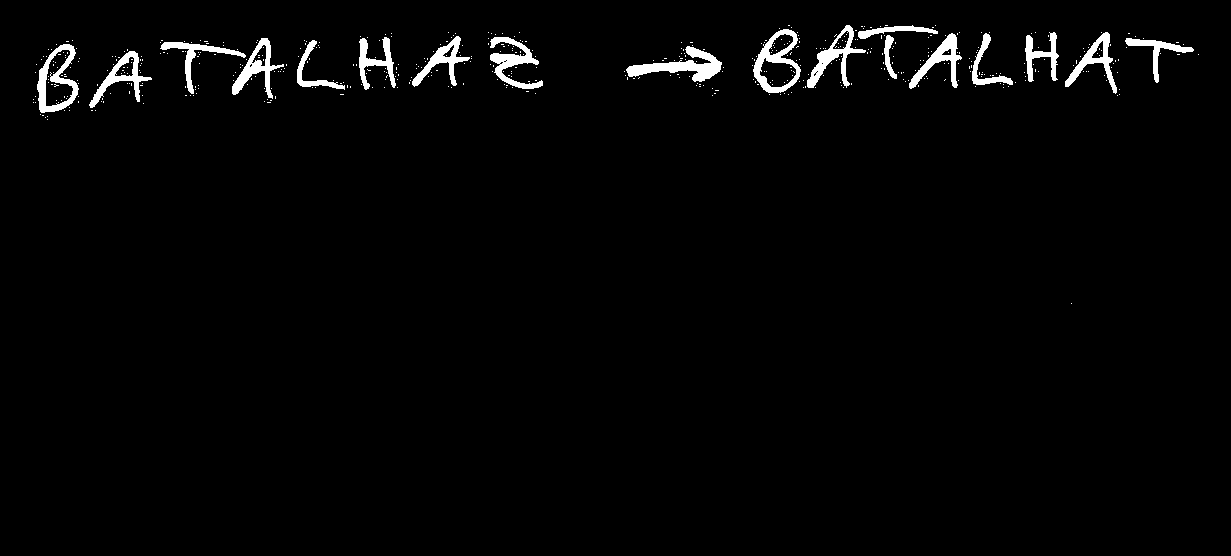 BATALHAZ → BATALHAT